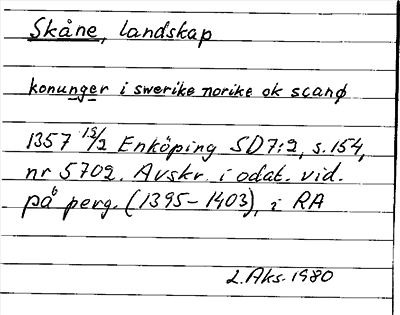 Skåne, landskap
konunger i swerike norike ok scanø
1357 15/2 Enköping SD7:2, s.154,
nr 5702. Avskr. i odat. vid.
på perg. (1395-1403), i RA
L.Aks. 1980